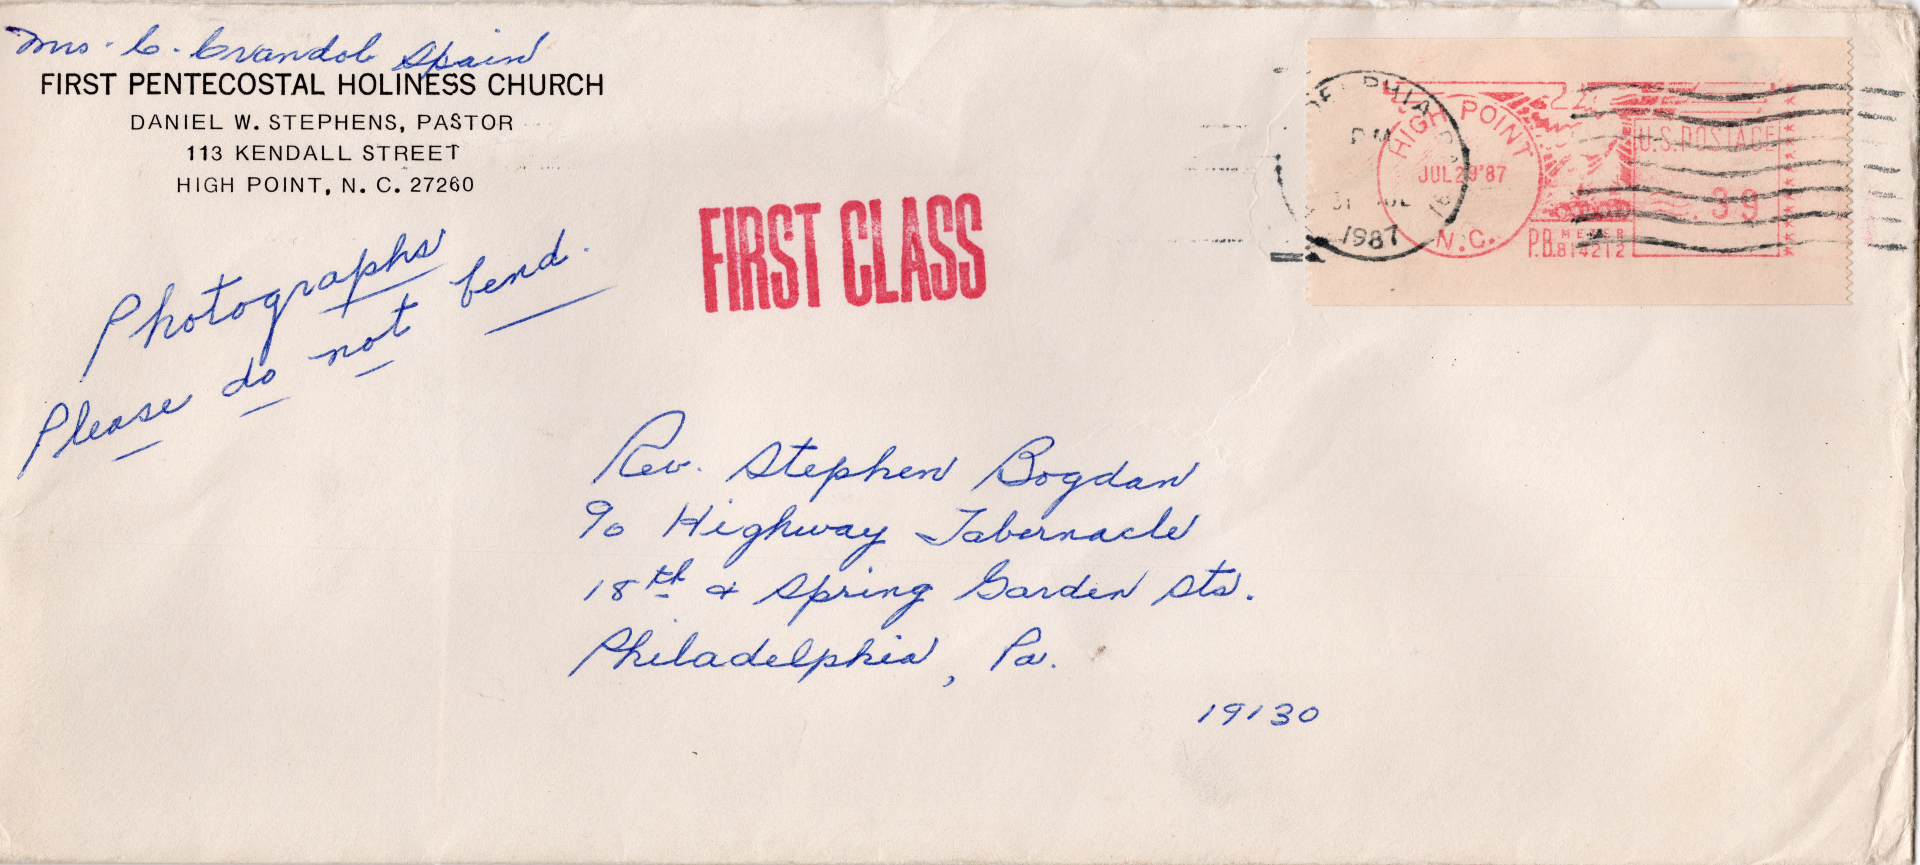 Mrs. C. Crandol Spain
FIRST PENTECOSTAL HOLINESS CHURCH
DANIEL W. STEPHENS, PASTOR
113 KENDALL STREET
HIGH POINT, N. C. 27260
Photographs
Please do not bend.
FIRST CLASS
PM
1987
HIGH POINT
JUL 29 '87
N.C.
U.S. POSTAGE
.39
P.B. METER
814212
Rev. Stephen Bogdan
% Highway Tabernacle
18th & Spring Garden Sts.
Philadelphia, Pa.
19130